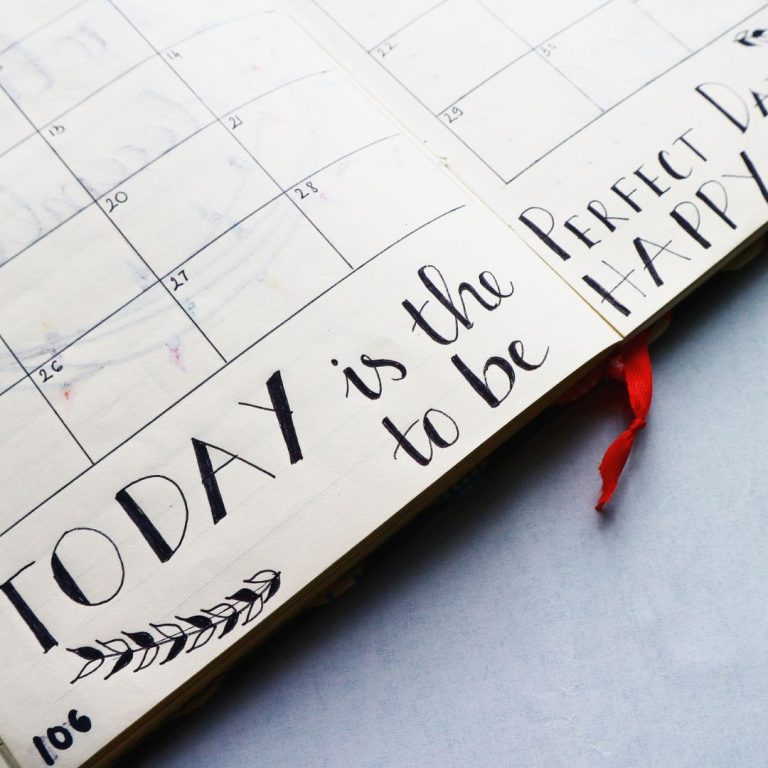 13 14
20 21
26 27 28
TODAY is the
to be
106
22
29 30
PERFECT DAY
HAPPY